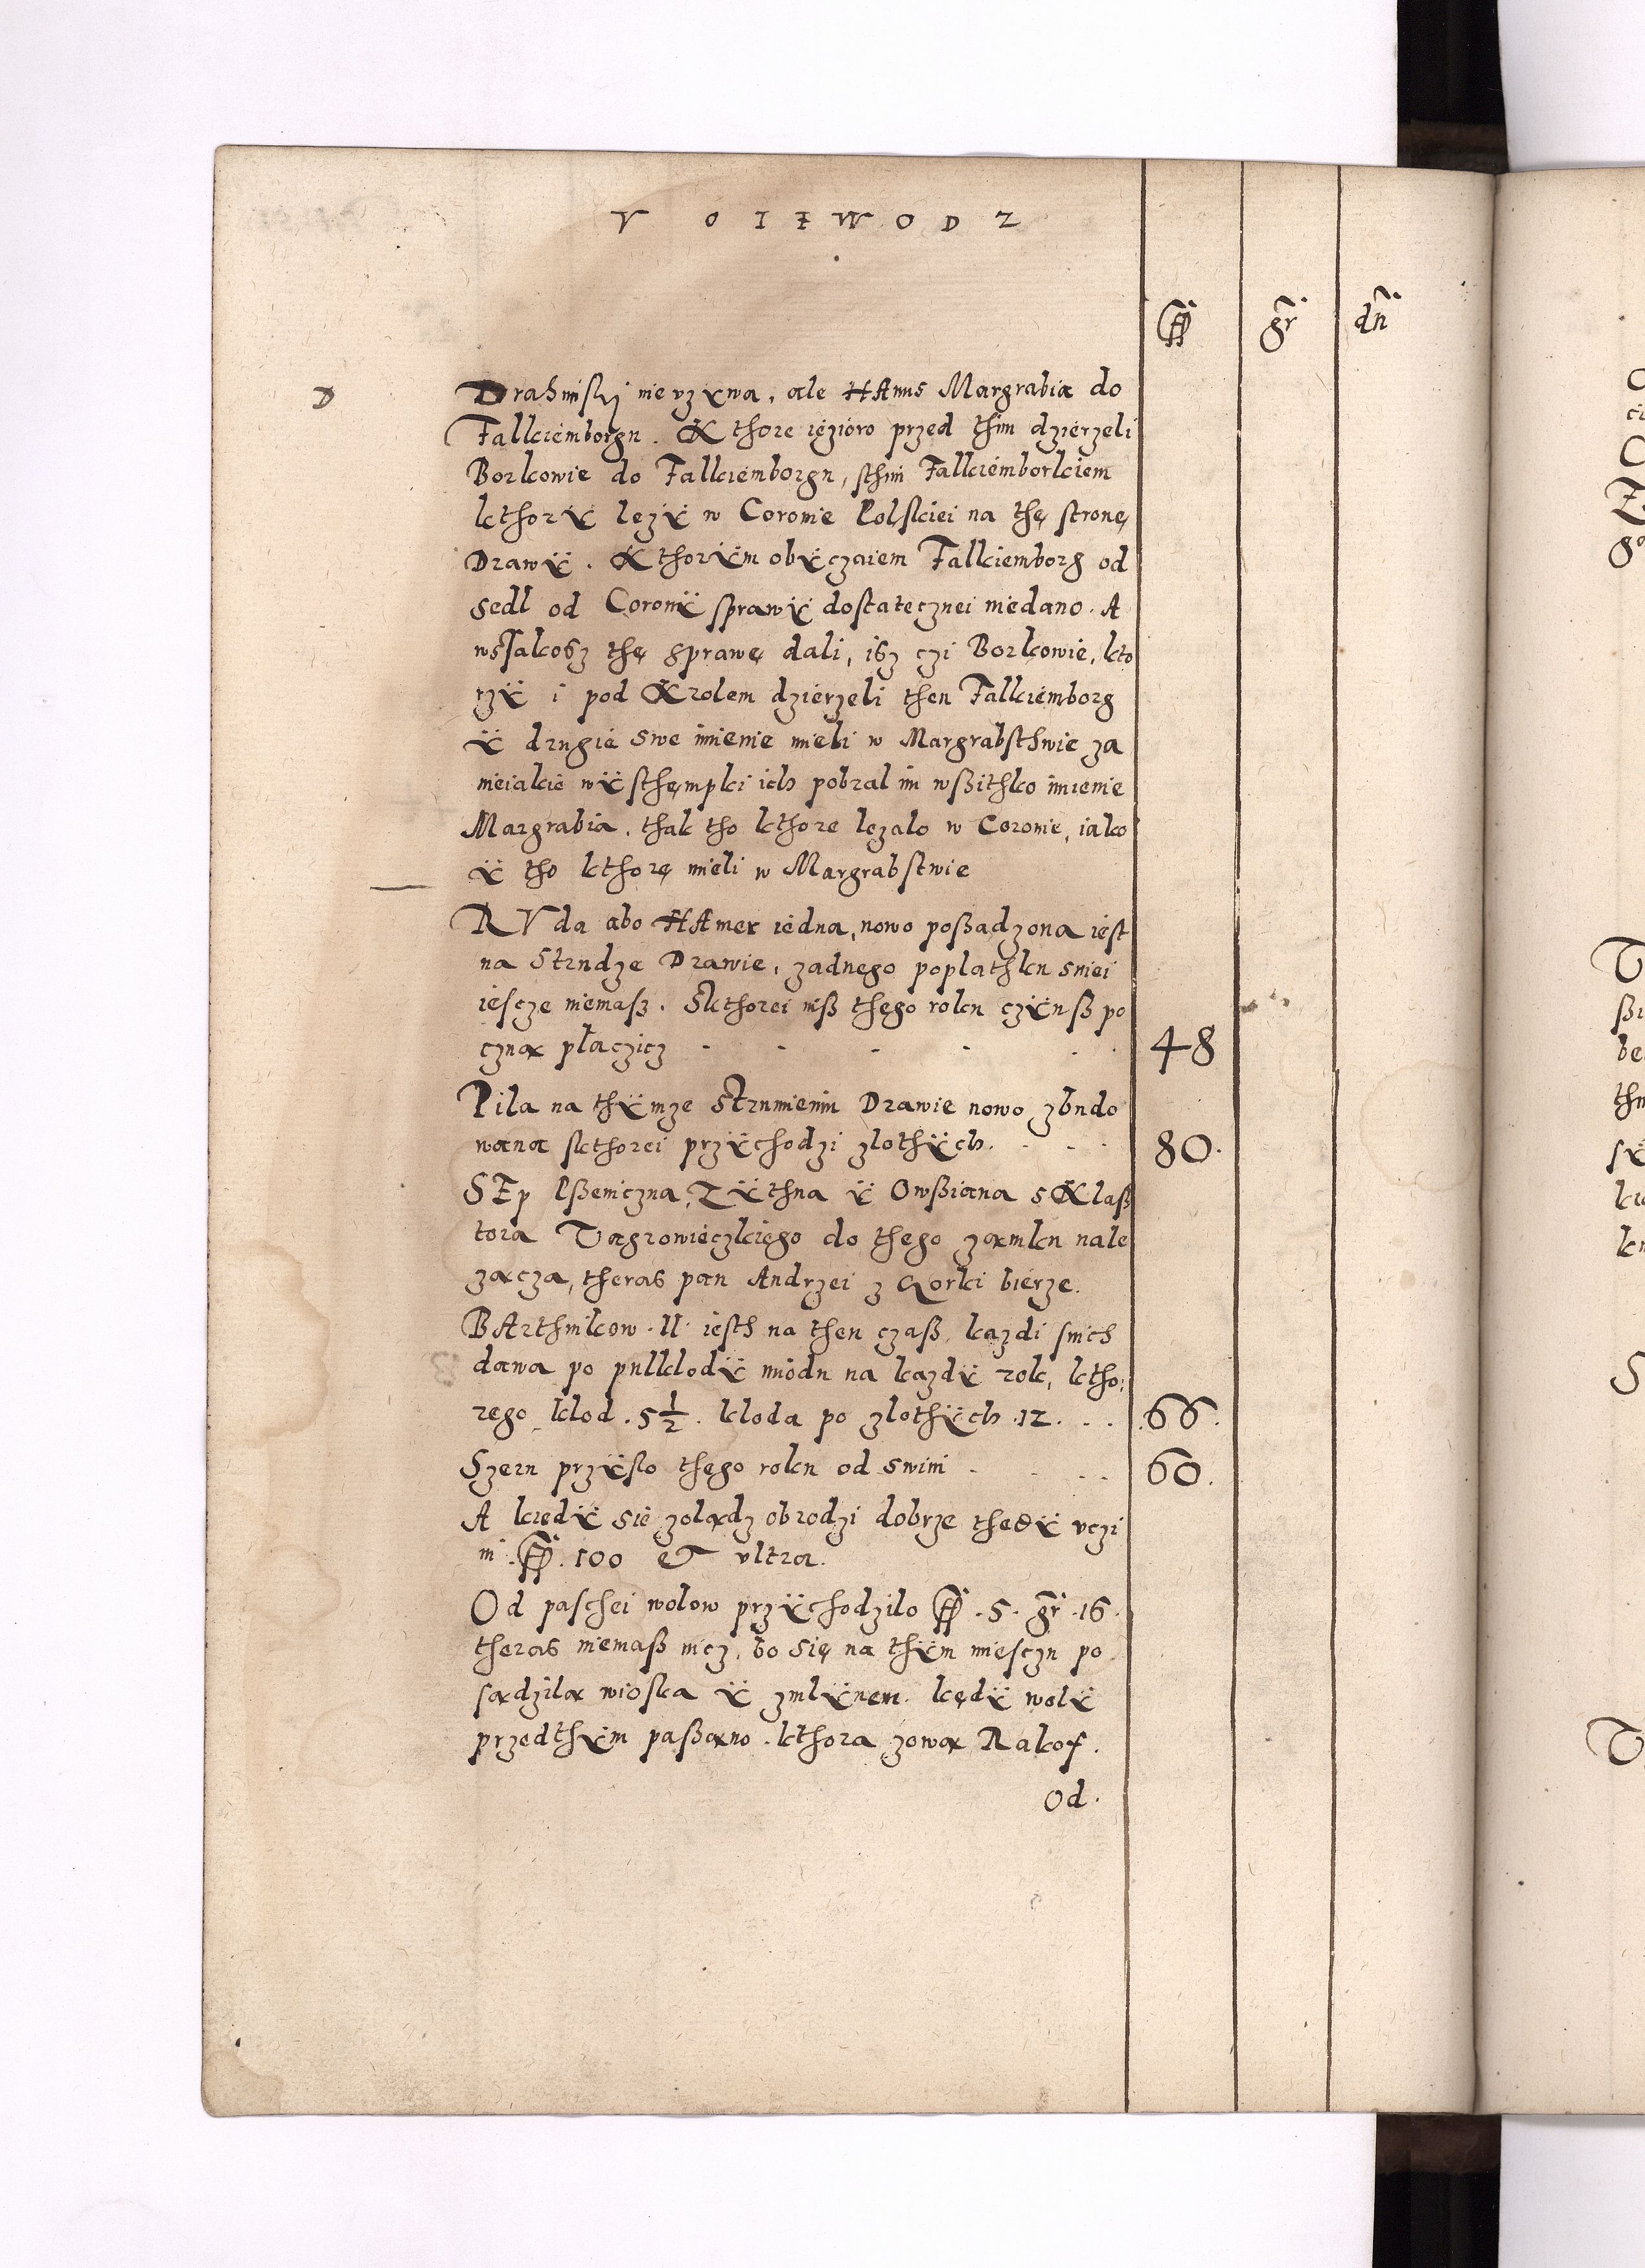 V O I E W O D Z
fl gr dn
D
Drahinskÿ nie vzÿwa, ale HAnus Margrabia do
Falkiemborgu. Kthore ieziero przed thim dzierzeli
Borkowie do Falkiemborgu, sthim Falkiemborkiem
kthorÿ lezÿ w Coronie Polskiei na thę stronę
Drawÿ. Kthorÿm obÿczaiem Falkiemborg od
sedl od Coronÿ sprawÿ dostatecznei niedano. A
wssakosz thę sprawę dali, isz czi Borkowie, kto
rzÿ i pod Krolem dzierzeli then Falkiemborg
ÿ drugie swe imienie mieli w Margrabsthwie za
nieiakie wÿsthęmpki ich pobral im wßithko imienie
Margrabia, thak tho kthore lezalo w Coronie, iako
ÿ tho kthorę mieli w Margrabstwie
RVda abo HAmer iedna, nowo poßadzona iest
na Strudze Drawie, zadnego poplathku sniei
iescze niemasz. Skthorei niß thego roku czÿnß po
czną płaczicz 48
Pila na thÿmze Strumieniu Drawie nowo zbudo
wana skthorei przÿchodzi zlothÿch. 80.
SEp Pßeniczna, Zÿthna ÿ Owßiana s Klaß
tora Vągrowieczkięgo do thego zamku nale
zącza, theras pan Andrzei z Gorki bierze.
BArthnikow .11. iesth na then czaß, kazdi snich
dawa po pulklodÿ miodu na kazdÿ rok, ktho:
rego klod .5 1/2. kloda po zlothÿch .12. 66.
Szeru przÿslo thego roku od swini 60.
A kiedÿ się zolądz obrodzi dobrze thedÿ vczi
ni .fl. 100 et vltra.
Od paschei wolow przÿchodzilo fl .5. gr .16.
theras niemasz nicz, bo się na thÿm miesczu po
sądzila wioska ÿ zmlÿnem. kędÿ wolÿ
przedthÿm paßano. kthora zową Rakof.
Od.